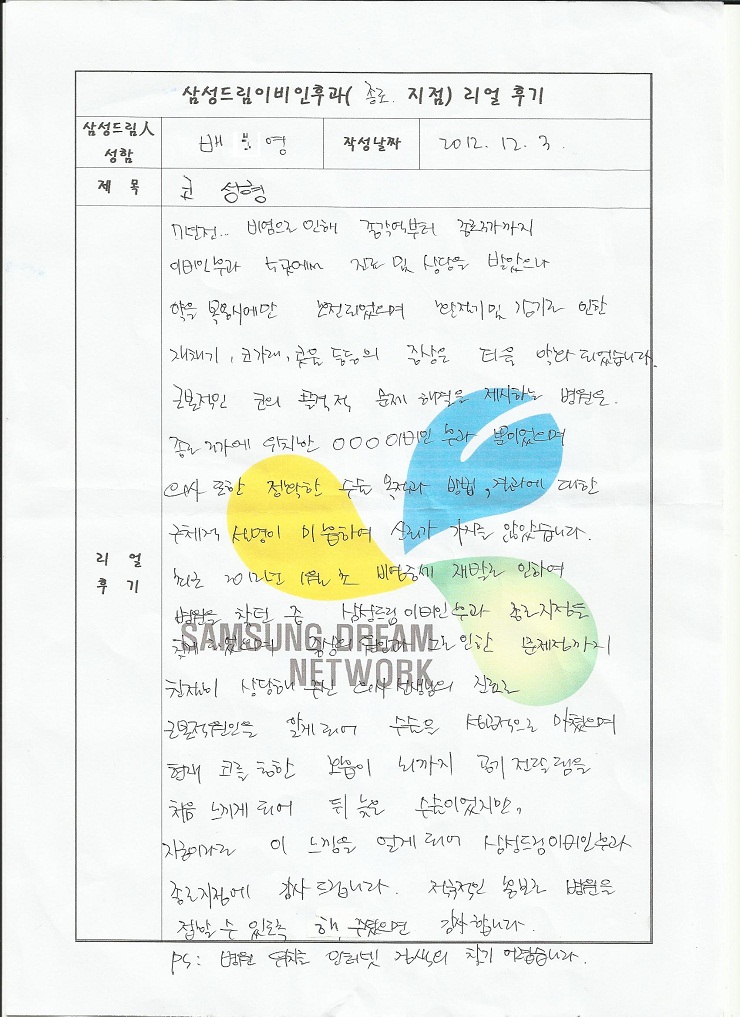 삼성드림이비인후과( 종로. 지점) 리얼 후기
삼성드림人 성함
배 영
작성날짜
2012. 12. 3.
제 목
코 성형
리 얼 후 기
7년전.. 비염으로 인해 종각역부터 종로3가까지
이비인후과 5곳에서 진료 및 상담을 받았으나
약을 복용시에만 호전되었으며 환절기 및 감기로 인한
재채기, 코가래, 콧물 등등의 증상은 더욱 악화 되었습니다.
근본적인 코의 골격적 문제 해결을 제시하는 병원은.
종로3가에 위치한 ○○○이비인후과 뿐이었으며
의사 또한 정확한 수술 목적과 방법, 결과에 대한
구체적 설명이 미흡하여 신뢰가 가지를 않았습니다.
최근 2012년 11월 초 비염증세 재발로 인하여
병원을 찾던 중 삼성드림이비인후과 종로지점을
찾게 되었으며 증상의 원인과 그로인한 문제점까지
친절히 상담해 주신 의사선생님의 진료로
근본적원인을 알게되어 수술을 성공적으로 마쳤으며
현재 코를 통한 호흡이 뇌까지 공기 전달됨을
처음 느끼게 되어 뒤 늦은 수술이었지만,
지금이라도 이 느낌을 얻게 되어 삼성드림이비인후과
종로지점에 감사드립니다. 지속적인 홍보로 병원을
접할 수 있도록 해 주셨으면 감사합니다.
PS: 병원 위치는 인터넷 검색의 찾기 어렵습니다.
SAMSUNG DREAM
NETWORK